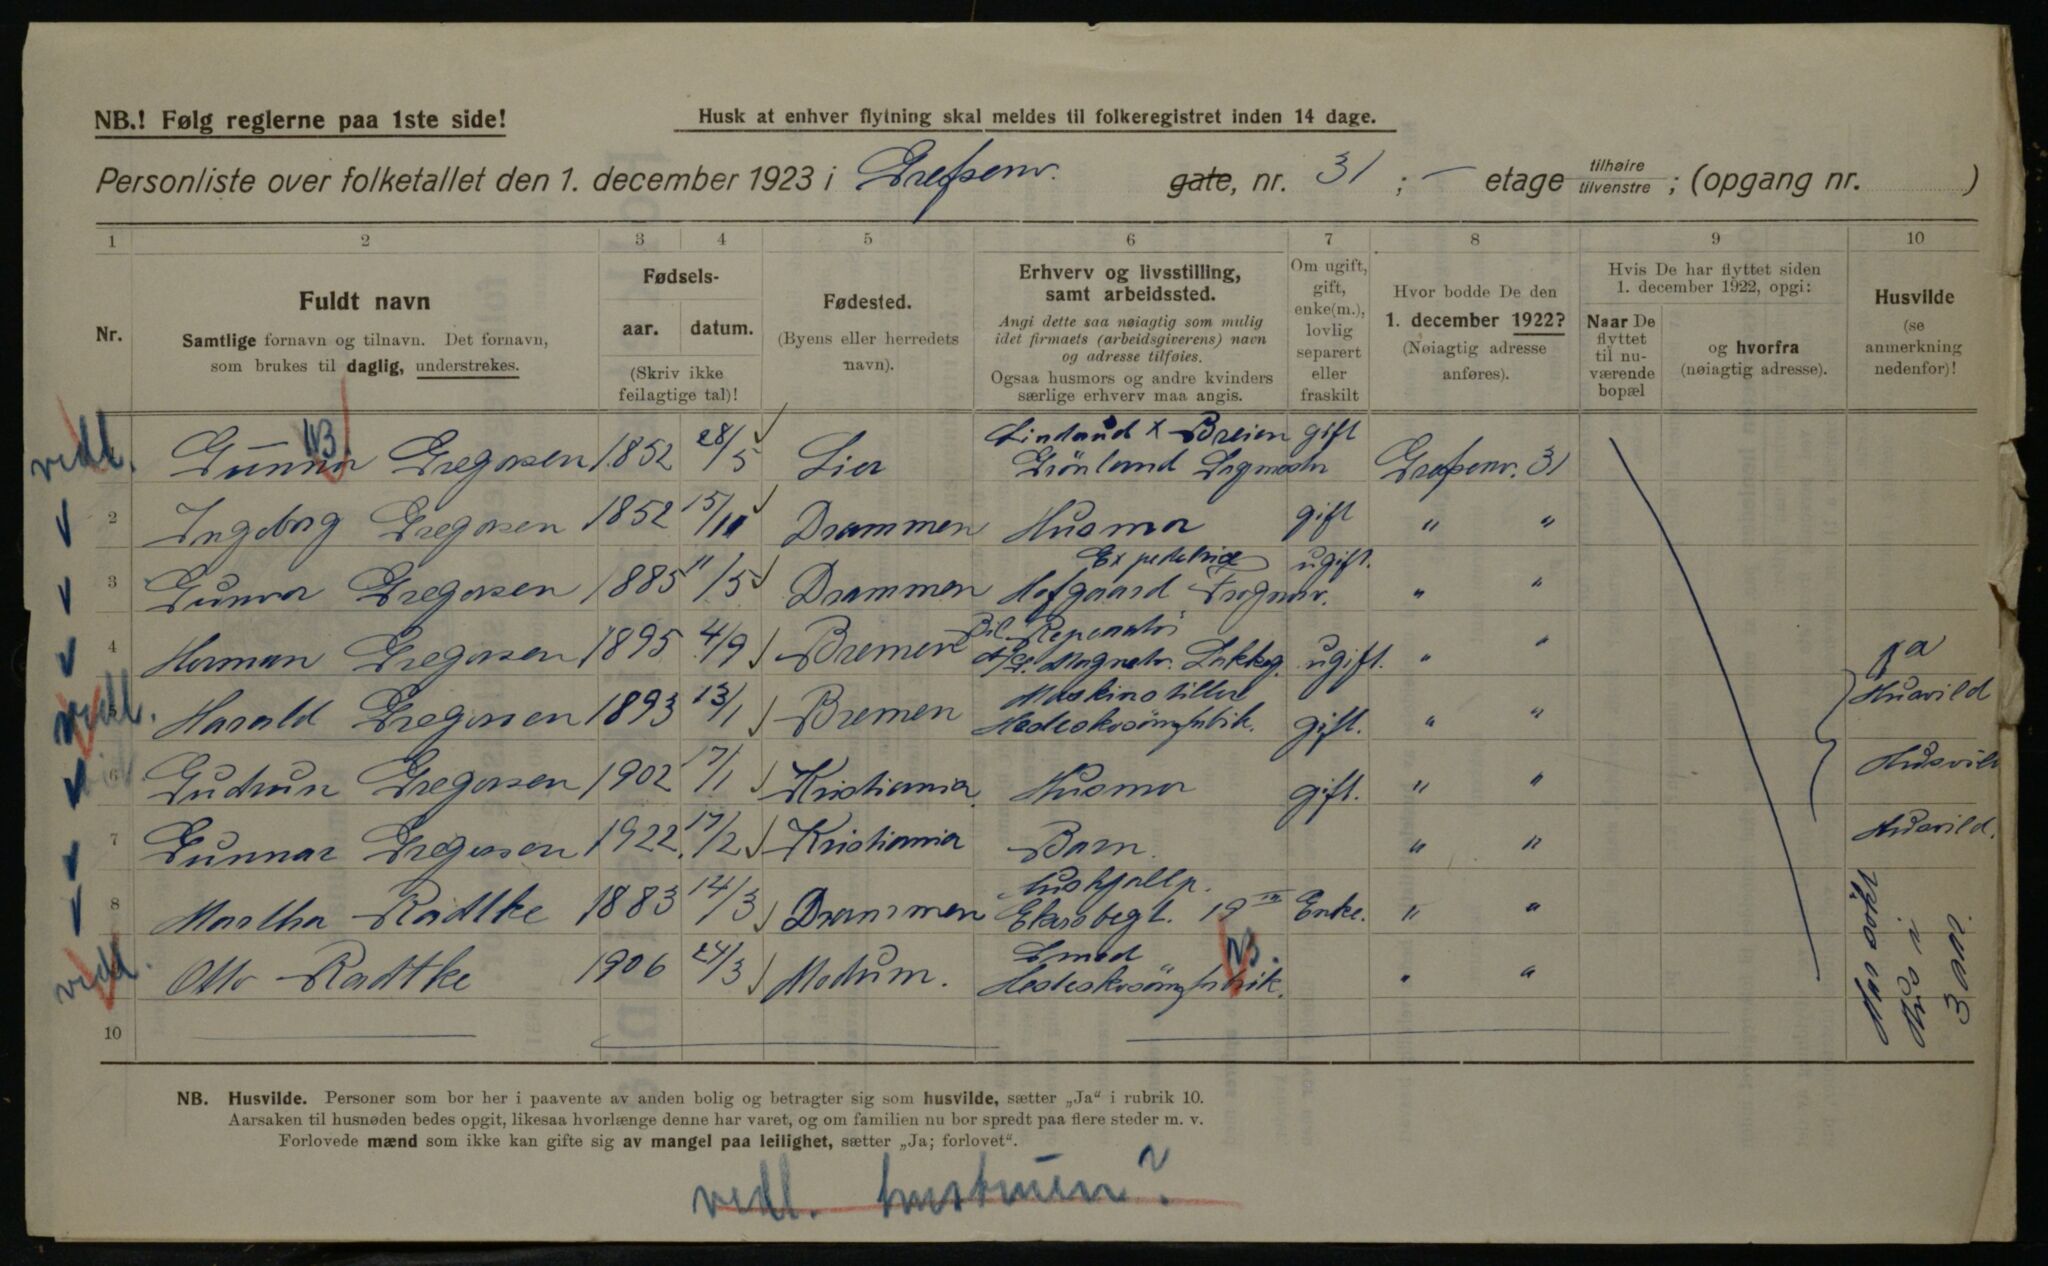 NB.! Følg reglerne paa 1ste side!
Husk at enhver flytning skal meldes til folkeregistret inden 14 dage.
Personliste over folketallet den 1. december 1923 i Grefsenv. gate, nr. 31 ; — etage tilhøire tilvenstre ; (opgang nr. )
1 2 3 4 5 6 7 8 9 10
Nr.
Fuldt navn
Samtlige fornavn og tilnavn. Det fornavn,
som brukes til daglig, understrekes.
Fødsels-
aar. datum.
(Skriv ikke
feilagtige tal)!
Fødested.
(Byens eller herredets
navn).
Erhverv og livsstilling,
samt arbeidssted.
Angi dette saa nøiagtig som mulig
idet firmaets (arbeidsgiverens) navn
og adresse tilføies.
Ogsaa husmors og andre kvinders
særlige erhverv maa angis.
Om ugift,
gift,
enke(m.),
lovlig
separert
eller
fraskilt
Hvor bodde De den
1. december 1922?
(Nøiagtig adresse
anføres).
Hvis De har flyttet siden
1. december 1922, opgi:
Naar De
flyttet
til nu-
værende
bopæl
og hvorfra
(nøiagtig adresse).
Husvilde
(se
anmerkning
nedenfor)!
vedl. Gunnar Gregersen 1852 28/5 Lier Breien Grönland gift Grefsenv. 31
2 Ingeborg Gregersen 1852 15/11 Drammen Husmor gift " "
3 Gunvor Gregersen 1885 11/5 Drammen Expeditrice Hofgaard Frognerv. ugift. " "
4 Herman Gregersen 1895 4/9 Bremen Bil Reperatør Lakkeg. ugift. " "
vedl. Harald Gregersen 1893 13/1 Bremen Maskinstiller Hesteskosömfabrik. gift. " " Ja Husvild
6 Gudrun Gregersen 1902 17/1 Kristiania Husmor gift. " " Husvild
7 Gunnar Gregersen 1922. 17/2 Kristiania Barn. " " Husvild.
8 Martha Radtke 1883 14/3 Drammen Hushjelp. Ekebergt. 19 Enke. " "
vedl. Otto Radtke 1906 24/3 Modum. Smed Hesteskosömfabrik. " "
Har søkt
Hus i
3 aar.
10
NB. Husvilde. Personer som bor her i paavente av anden bolig og betragter sig som husvilde, sætter „Ja“ i rubrik 10.
Aarsaken til husnøden bedes opgit, likesaa hvorlænge denne har varet, og om familien nu bor spredt paa flere steder m. v.
Forlovede mænd som ikke kan gifte sig av mangel paa leilighet, sætter „Ja; forlovet“.
vedl.